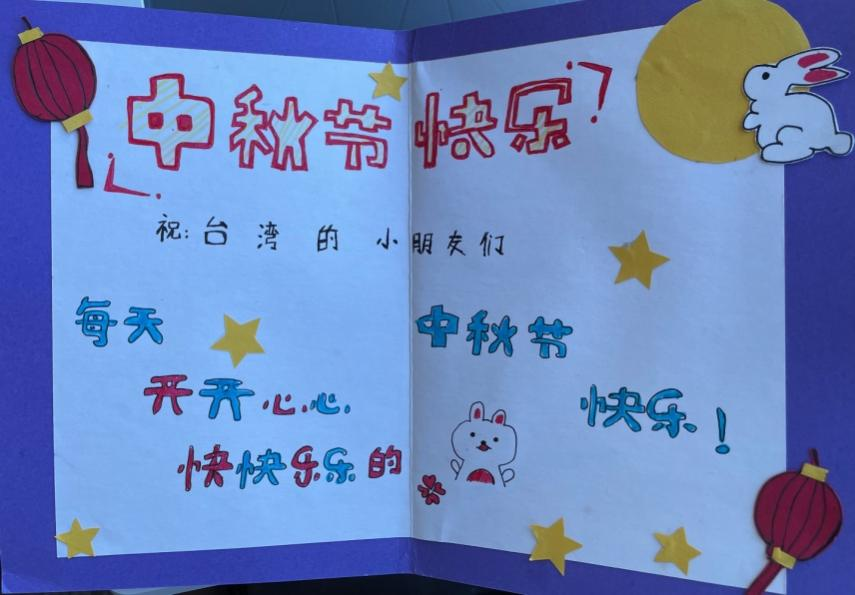 中秋节快乐
祝:台湾的小朋友们
每天
开开心心
快快乐乐的
中秋节
快乐!